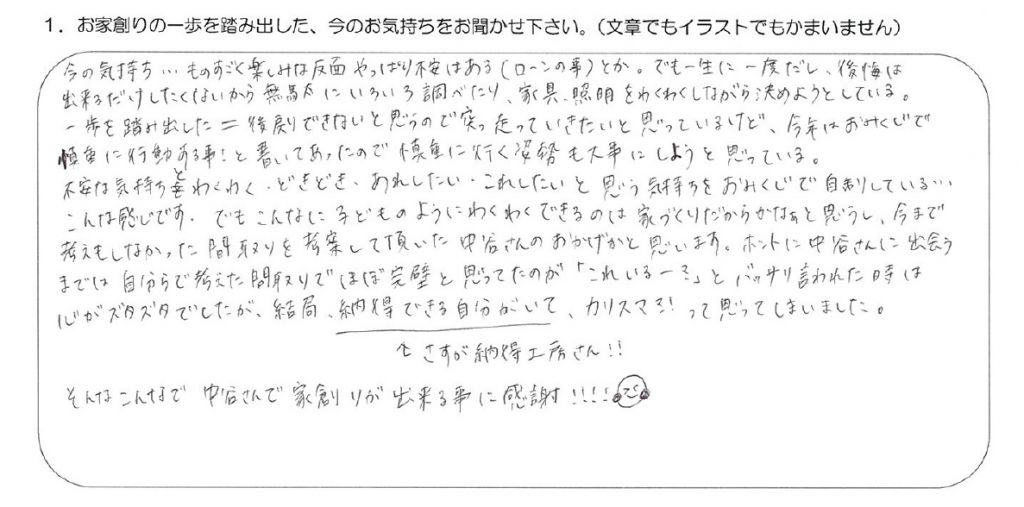 1. お家創りの一歩を踏み出した、今のお気持ちをお聞かせ下さい。(文章でもイラストでもかまいません)
今の気持ち…ものすごく楽しみな反面 やっぱり不安はある(ローンの事)とか。でも一生に一度だし、後悔は
出来るだけしたくないから 無駄にいろいろ調べたり、家具、照明をわくわくしながら決めようとしている。
一歩を踏み出した=後戻りできないと思うので突っ走っていきたいと思っているけど、今年はおみくじで
慎重に行動ある事!と書いてあったので慎重に行く姿勢も大事にしようと思っている。
不安な気持ちとわくわく・どきどき・あれしたい・これしたいと思う気持ちをおみくじで自制している…
こんな感じです。でもこんなに子どものようにわくわくできるのは家づくりだからかなぁと思うし、今まで
考えもしなかった間取りを考案して頂いた中谷さんのおかげかと思います。ホントに中谷さんに出会う
までは自分らで考えた間取りでほぼ完璧と思ってたのが「これいるー?」とバッサリ言われた時は
心がズタズタでしたが、結局、納得できる自分がいて、カリスマ!って思ってしまいました。
↑さすが納得工房さん!!
そんなこんなで 中谷さんで家創りが出来る事に感謝!!!!